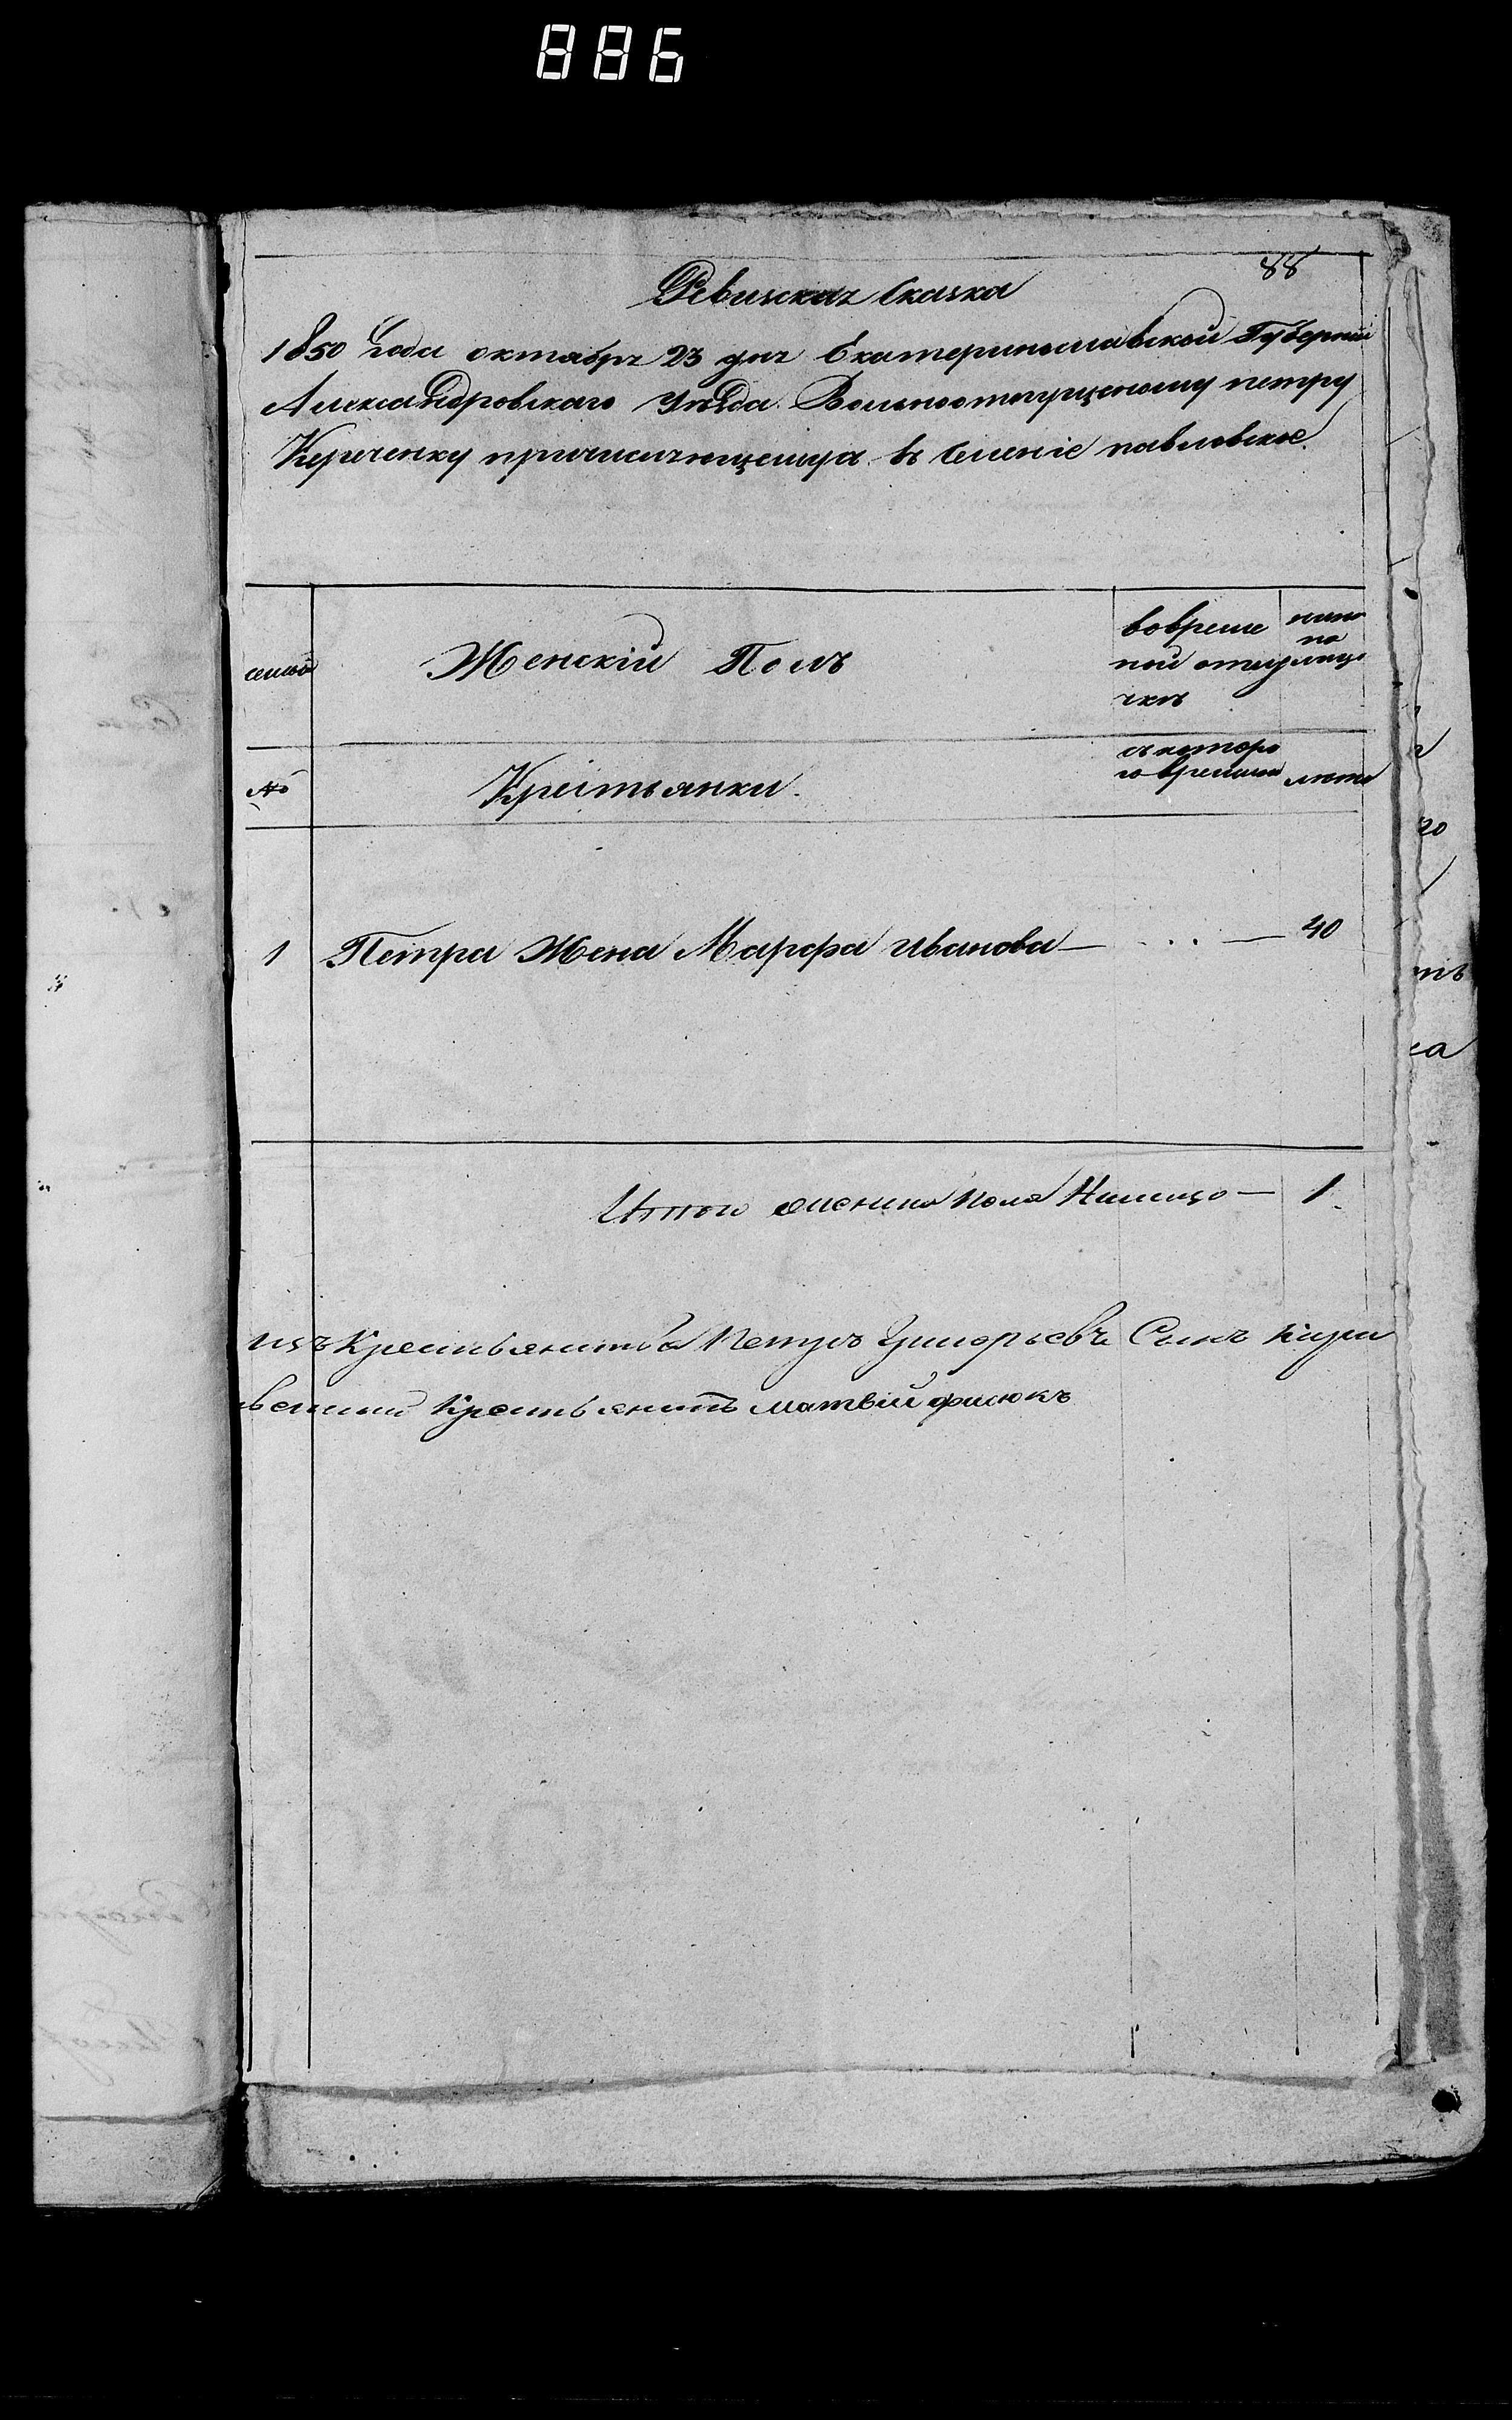 886
88
Ревизская Сказка
1850 Года октября 23 дня Екатеринославской Губерніи
Александровскаго Уѣзда Вольноотпущеному петру
причисляющемуся в Селеніе павловское.
семьи
Женскій Полъ
вовреме
ной отлу
чкѣ
ныне
на
лицо
№
Крестьянки.
съкоторо
го времени
лета
1 Петра Жена Марфа Иванова — . . . — 40
Итого женска пола Налицо — 1.
изъ Крестьянства Петръ Григорьевъ Сынъ
Крестьянинъ матвей